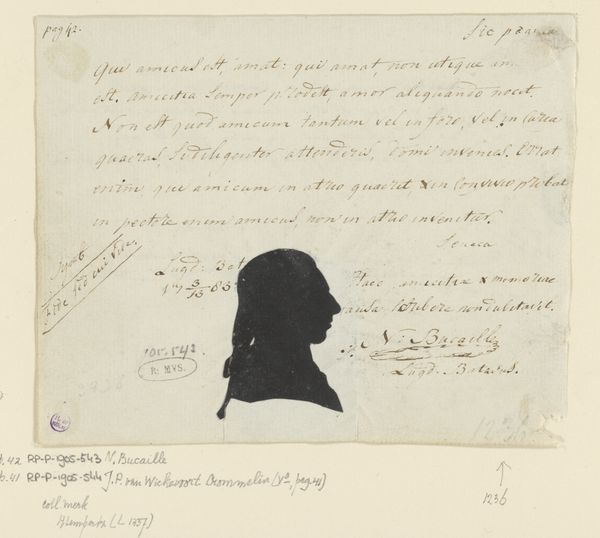 pag 42.
Sic p
Qui amicus est, amat: qui amat, non utique am
est. amicitia semper prodest, amor aliquando nocet.
Non est quod amicum tantum vel in foro, vel in Curia
quaeras, si diligenter attenderis, domi invenies. Errat
enim, qui amicum in atrio quaerit, & in Convivio probat
in pectore enim amicus, non in atrio invenitur.
Seneca
Symb
Fide sed cui vide.
Lugd: Bat
17 3/13 83
Haec amicitiae & memoriae
causa scribere non dubitavit.
N: Bucaille
Lugd. Batavus.
1905.543
R: MVS.
1236
b.42 RP-P-1905-543 N. Bucaille
b.41 RP-P-1905-544 J.P. van Wickevoort Crommelin (Vo, pag 41)
1236
coll merk
Hlempertz (L 1337)